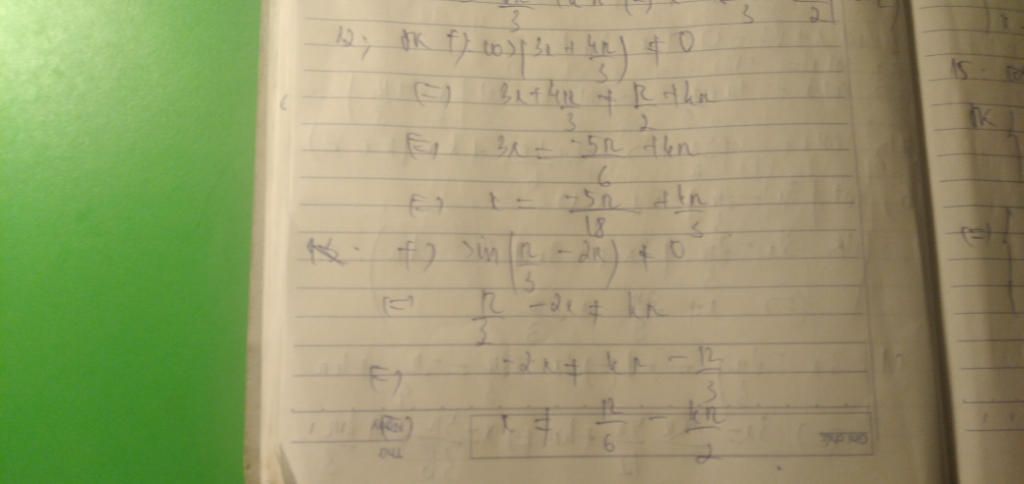 12; ĐK +) cos(3x + 4π/3) ≠ 0
⇔ 3x + 4π/3 ≠ π/2 + kπ
⇔ 3x = -5π/6 + kπ
⇔ x = -5π/18 + kπ/3
+) sin(π/3 - 2x) ≠ 0
⇔ π/3 - 2x ≠ kπ
⇔ -2x ≠ kπ - π/3
⇔ x ≠ π/6 - kπ/2
15.
ĐK
⇔ {